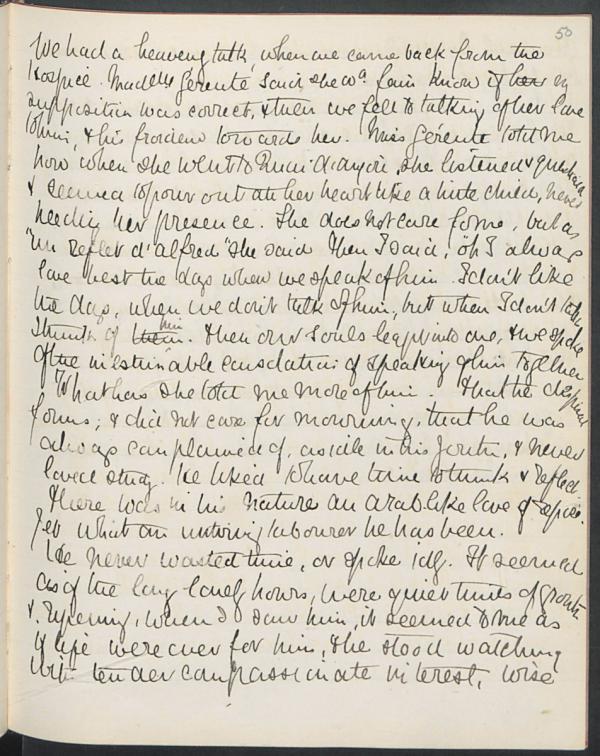 50
We had a heavenly talk, when we came back from the
Hospice. Madelle Gérente said she wd. fain know if her my
supposition was correct, & then we fell to talking of her love
to him, & his towards her. Miss Gérente told me
how when she went to she listened & questioned
& seemed to pour out all her heart like a little child, never
heeding her presence. She does not care for me, but as
"un reflet d'alfred" she said. Then I said, "oh I always
love best the days when we speak of him. I don't like
the days, when we don't talk of him, but when I don't talk
I think of them him. Then our souls leapt into one, & we spoke
of the inestimable consolation of speaking of him together
What has she told me more of him. That he despised
forms, & did not care for mourning, that he was
always complained of, as idle in his youth, & never
loved study. He liked to have time to think & reflect.
There was in his nature an arab like love of repose.
Yet what an untiring labourer he has been.
He never wasted time, or spoke idly. It seemed
as if the long lonely hours, were quiet times of growth
& ripening, when I saw him, it seemed to me as
if life were over for him, & he stood watching
with tender compassionate interest, wise